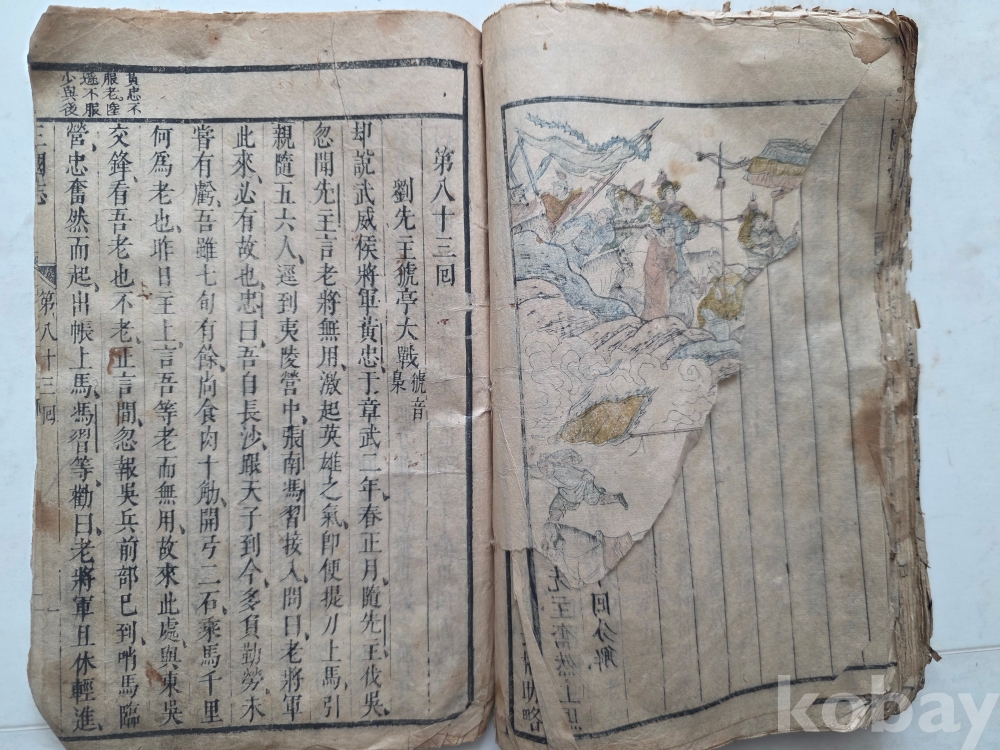 黃忠不
服老陸
遜不服
少與後
第八十三囘
劉先主猇亭大戰 猇音梟
却說武威侯將軍黃忠于章武二年春正月隨先主伐吳
忽聞先主言老將無用激起英雄之氣卽便提刀上馬引
親隨五六人逕到夷陵營中張南馮習接入問曰老將軍
此來必有故也忠曰吾自長沙跟天子到今多負勤勞未
嘗有虧吾雖七旬有餘尚食肉十觔開弓二石乘馬千里
何爲老也昨日主上言吾等老而無用故來此處與東吳
交鋒看吾老也不老正言間忽報吳兵前部已到哨馬臨
營忠奮然而起出帳上馬馮習等勸曰老將軍且休輕進
三國志 第八十三囘
囘分解
kobay